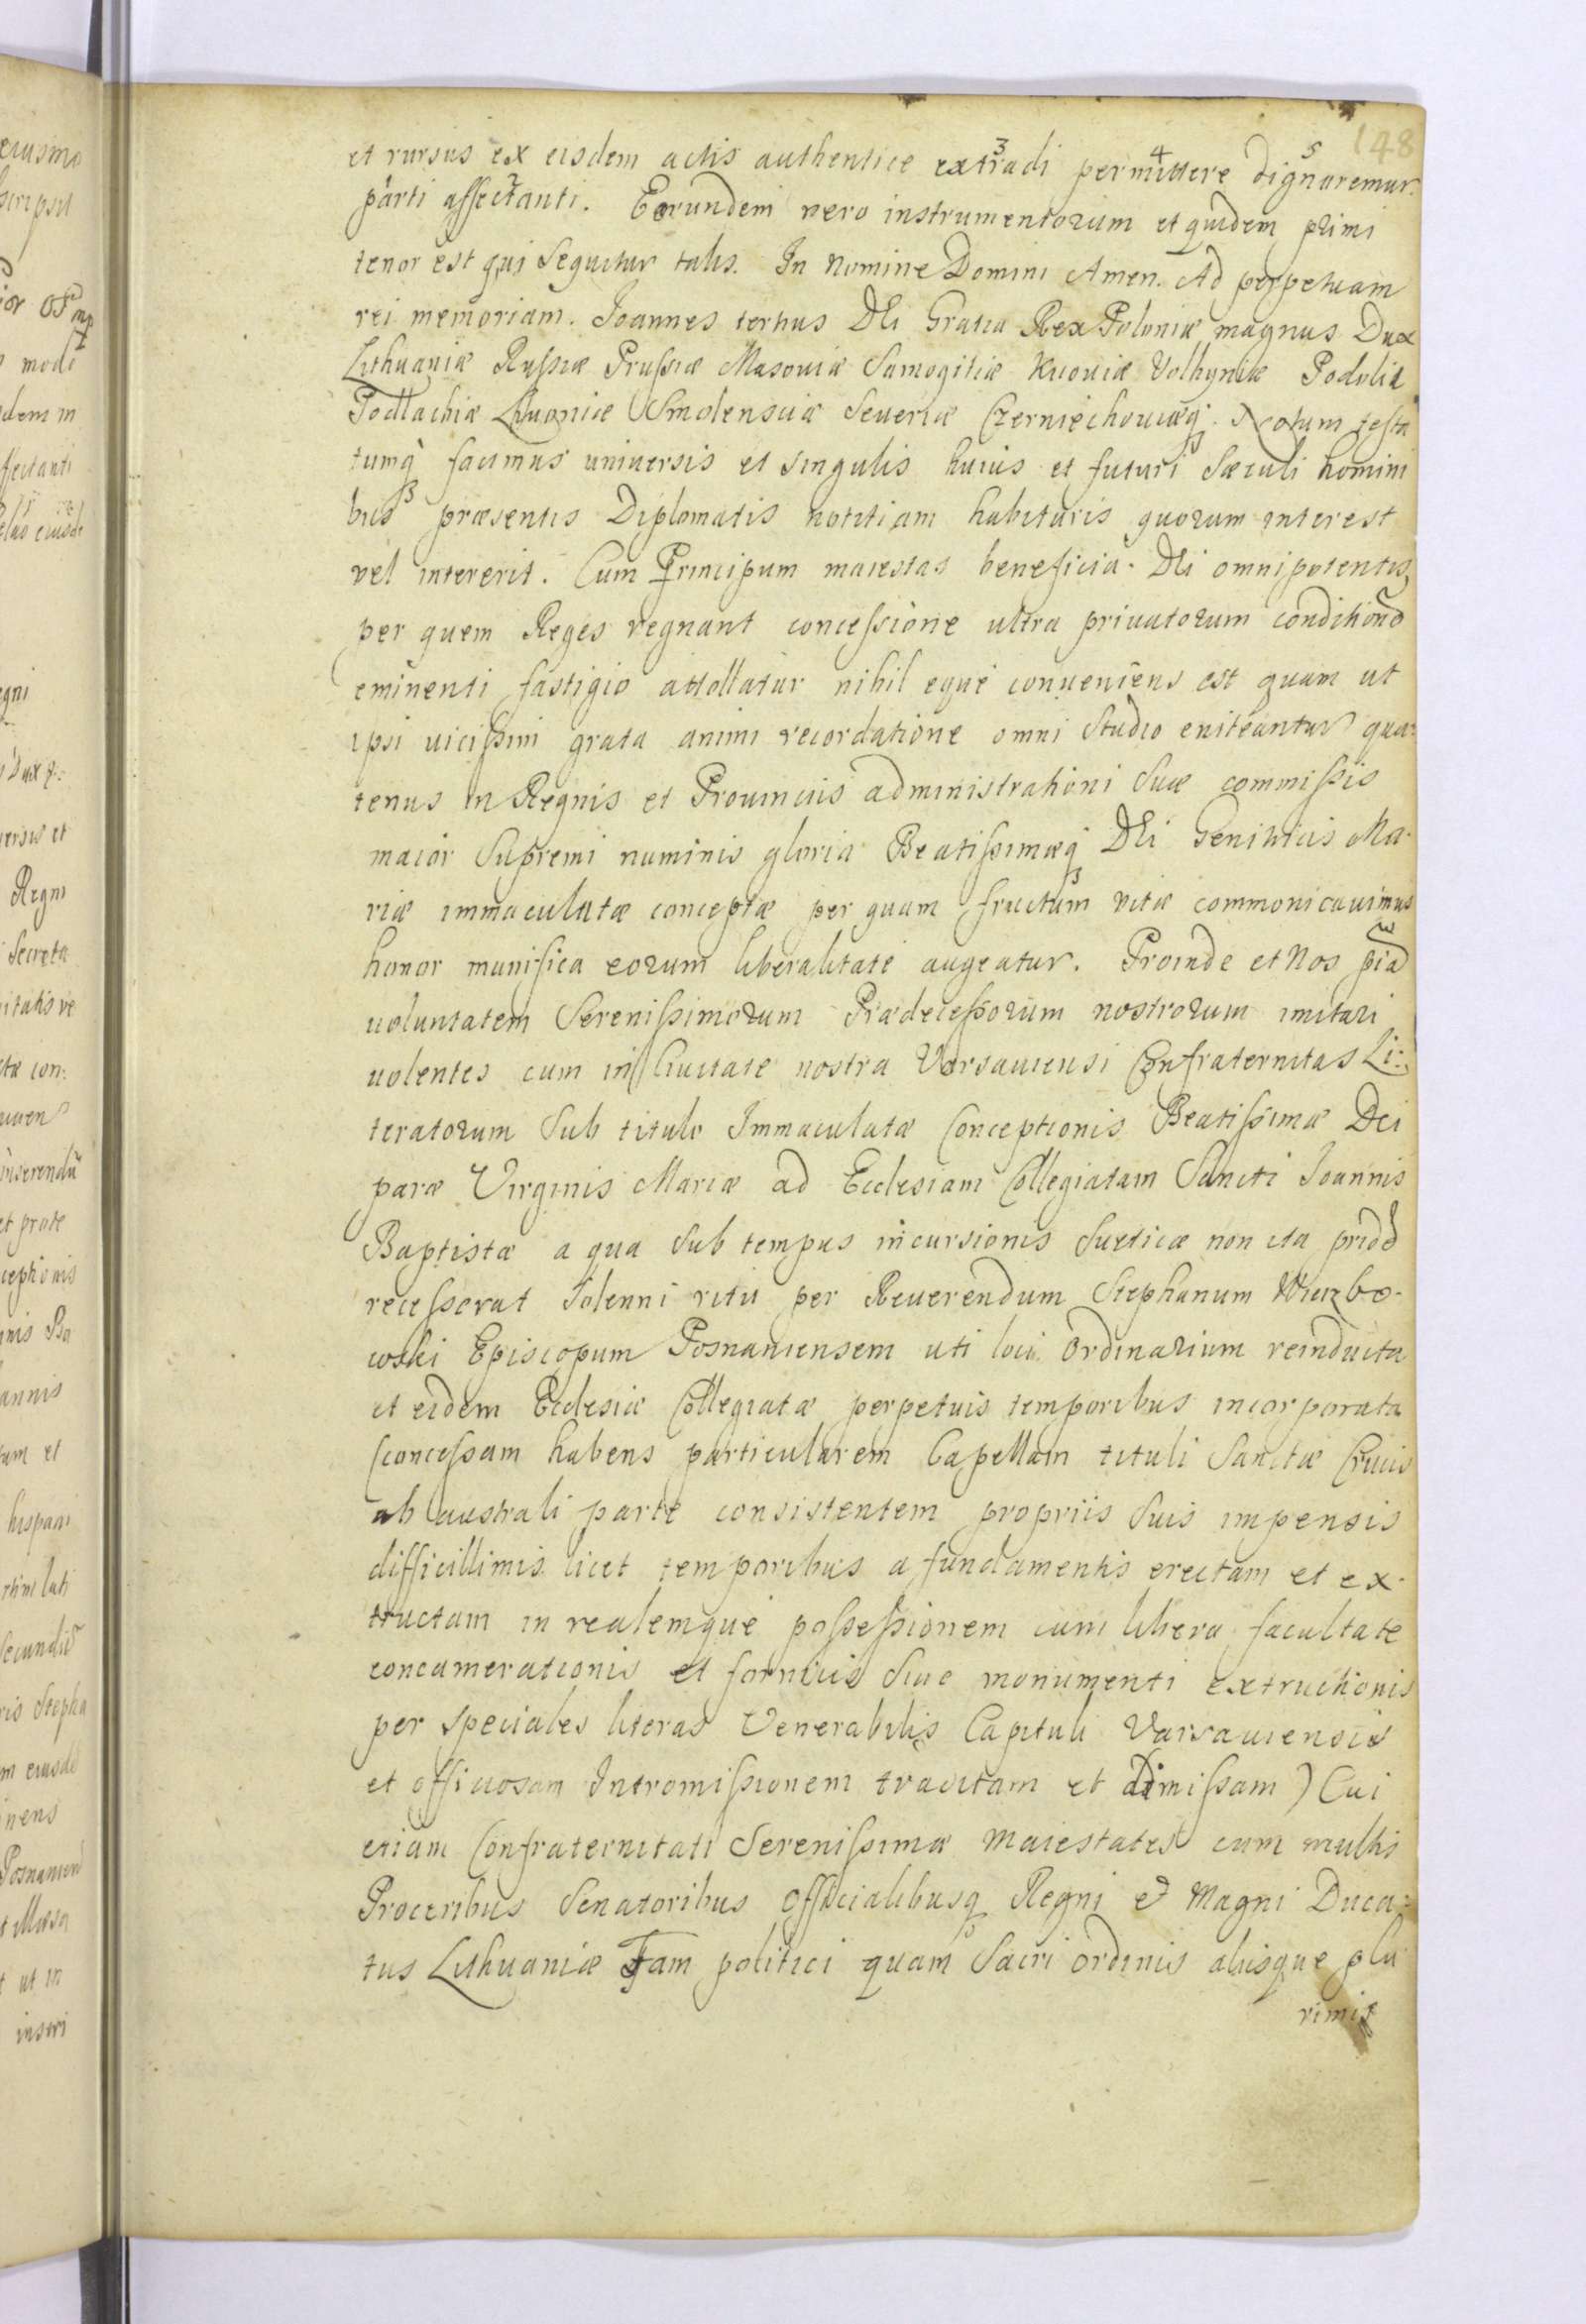 148
et rursus ex eisdem actis authentice extradi permittere dignaremur.
parti affectanti. Eorundem vero instrumentorum et quidem primi
tenor est qui sequitur talis. In Nomine Domini Amen. Ad perpetuam
rei memoriam. Joannes tertius DEi Gratia Rex Poloniæ magnus Dux
Lithuaniæ Russiæ Prussiæ Masouiæ Samogitiæ Kiouiæ Volhyniæ Podoliæ
Podlachiæ Liuoniæ Smolensciæ Seueriæ Czerniechouiæq. Notum testa
tumq facimus uniuersis et singulis huius et futuri sæculi homini
bus præsentis Diplomatis notitiam habituris quorum interest
vel intererit. Cum Principum maiestas beneficia DEi omnipotentis,
per quem Reges regnant concessione ultra priuatorum conditione
eminenti fastigio attollatur nihil eque conueniens est quam ut
ipsi uicissim grata animi recordatione omni studio eniteantur qua:
tenus in Regnis et Prouinciis administrationi suæ commissis
maior supremi numinis gloria Beatissimæq DEi Genitricis Ma.
riæ immaculatæ conceptæ per quam fructum vitæ commonicauimus
honor munifica eorum liberalitate augeatur. Proinde et Nos piã
uoluntatem Serenissimorum Prædecessorum nostrorum imitari
uolentes cum in Ciuitate nostra Varsauiensi Confraternitas Li:
teratorum sub titulo Immaculatæ Conceptionis Beatissimæ Dei
paræ Virginis Mariæ ad Ecclesiam Collegiatam Sancti Joannis
Baptistæ a qua sub tempus incursionis Sueticæ non ita pridẽ
recesserat solenni ritu per Reuerendum Stephanum Wierzbo-
wski Episcopum Posnaniensem uti loci Ordinarium reinducta
et eidem Ecclesiæ Collegiatæ perpetuis temporibus incorporata
(concessam habens particularem Capellam tituli Sanctæ Crucis
ab australi parte consistentem propriis suis impensis
difficillimis licet temporibus a fundamentis erectam et ex.
tructam in realemque possessionem cum libera facultate
concamerationis et fornicis siue monumenti extructionis
per speciales literas Venerabilis Capituli Varsauiensis
et officiosam Intromissionem traditam et dimissam) Cui
etiam Confraternitati Serenissimæ Maiestates cum multis
Proceribus Senatoribus Officialibusq Regni et Magni Duca:
tus Lithuaniæ Tam politici quam Sacri ordinis aliisque plu
rimis